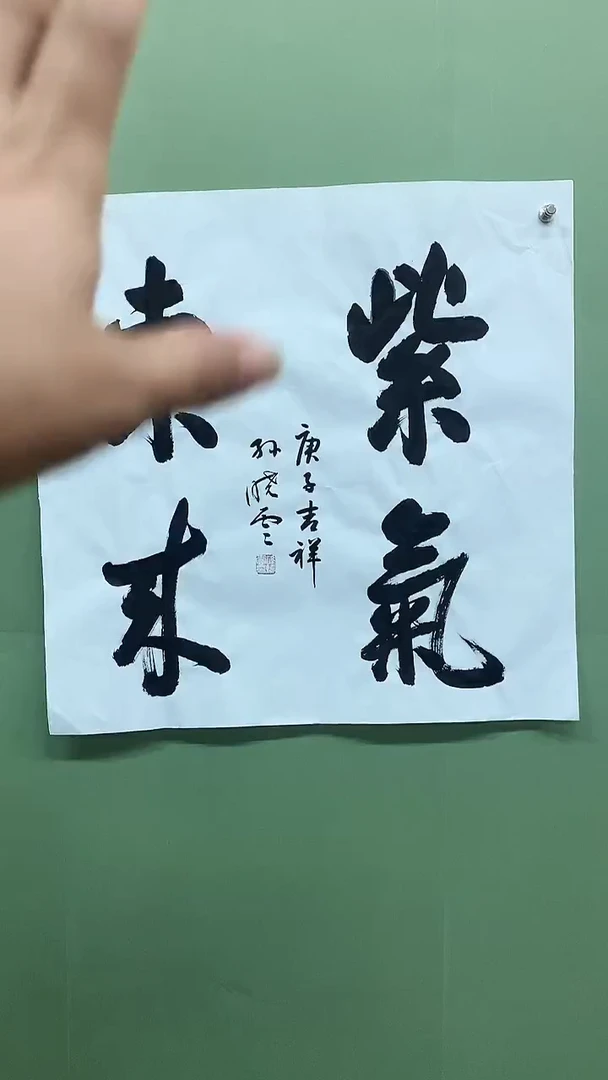 紫氣
東来
庚子吉祥
孙晓雲